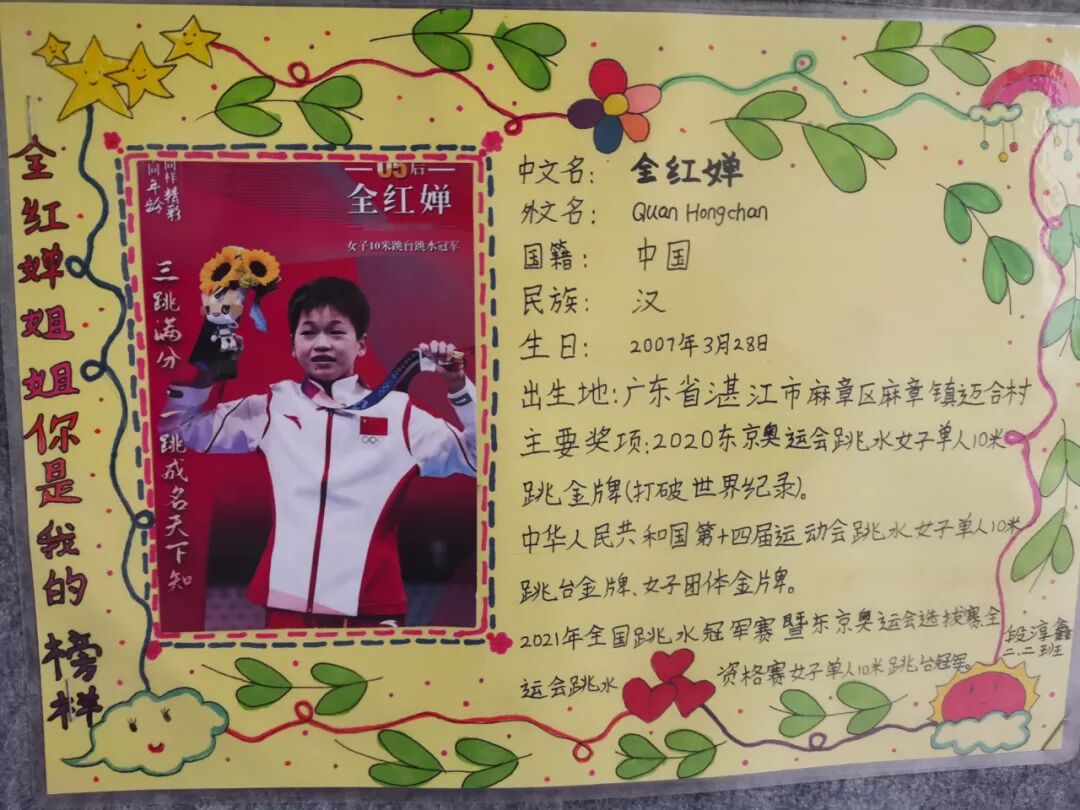 全红婵姐姐你是我的榜样
同样精彩
同年龄
05后
全红婵
女子10米跳台跳水冠军
三跳满分
一跳成名天下知
中文名：全红婵
外文名：Quan Hongchan
国籍：中国
民族：汉
生日：2007年3月28日
出生地：广东省湛江市麻章区麻章镇迈合村
主要奖项：2020东京奥运会跳水女子单人10米
跳金牌(打破世界纪录)。
中华人民共和国第十四届运动会跳水女子单人10米
跳台金牌、女子团体金牌。
2021年全国跳水冠军赛暨东京奥运会选拔赛、全
运会跳水资格赛女子单人10米跳台冠军。
段淳鑫
二.二班